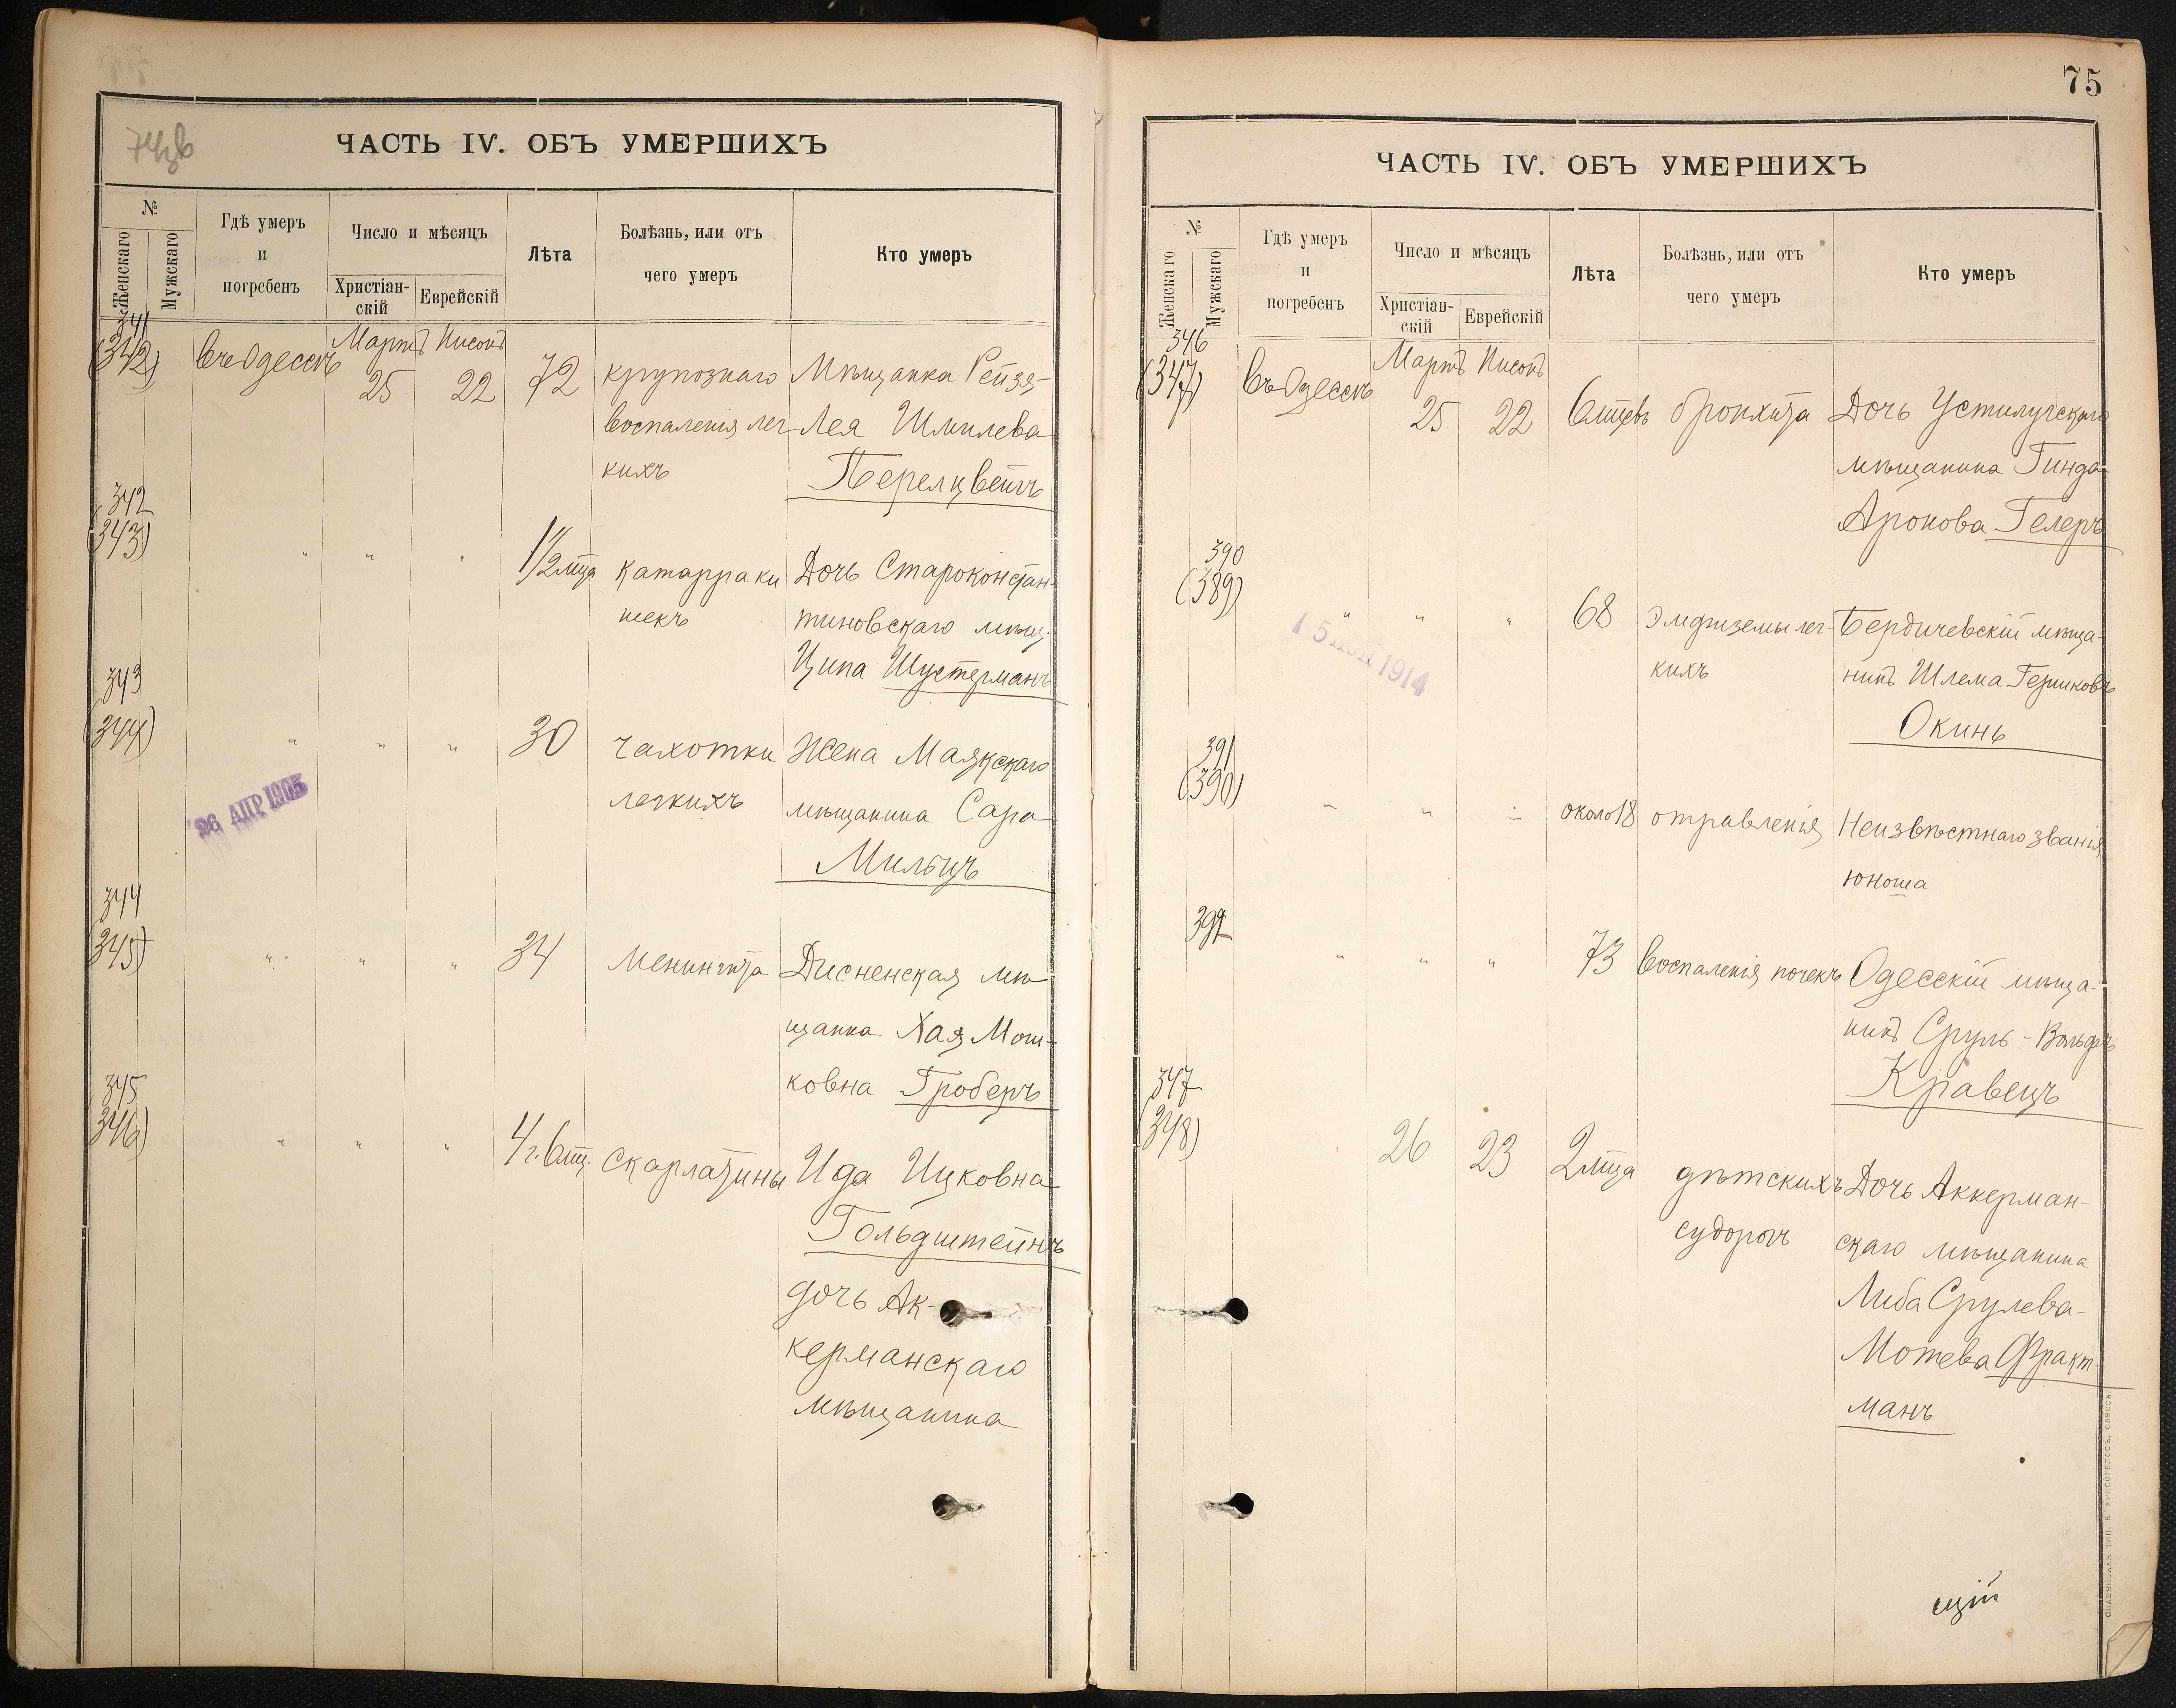 74зв
ЧАСТЬ IV. ОБЪ УМЕРШИХЪ
№
Женскаго
Мужскаго
Гдѣ умеръ
и
погребенъ
Число и мѣсяцъ
Христіан-
скій
Еврейскій
Лѣта
Болѣзнь, или отъ
чего умеръ
Кто умеръ
341
(342)
въ Одессѣ
Мартъ Нисонъ
25 22
72
крупознаго
воспаленія лег
кихъ
Мѣщанка Рейзя-
Лея Шмилева
Перелцвейгъ
342
(343)
" " "
1 1/2 мца
катарра ки
шекъ
Дочь Староконстан-
тиновскаго мѣщ.
Ципа Шустерманъ
343
(344)
" " "
30
чахотки
легкихъ
Жена Маякскаго
мѣщанина Сара
Мильцъ
26 АПР 1905
344
(345)
" " "
34
менингита
Дисненская мѣ
щанка Хая Мош-
ковна Гроберъ
345
(346)
" " "
4 г. 6 мц.
скарлатины
Ида Ицковна
Гольдштейнъ
дочь Ак-
керманскаго
мѣщанина
75
ЧАСТЬ IV. ОБЪ УМЕРШИХЪ
№
Женскаго
Мужскаго
Гдѣ умеръ
и
погребенъ
Число и мѣсяцъ
Христіан-
скій
Еврейскій
Лѣта
Болѣзнь, или отъ
чего умеръ
Кто умеръ
346
(347)
въ Одессѣ
Мартъ Нисонъ
25 22
6 мцевъ
бронхита
Дочь Устилугскаго
мѣщанина Гинда
Аронова Гелеръ
390
(389)
" " "
68
эмфиземы лег-
кихъ
Бердичевскій мѣща-
нинъ Шлема Гершковъ
Окинь
15 1914
391
(390)
" " "
около 18
отравленія
Неизвѣстнаго званія
юноша
" " "
73
воспаленія почекъ
Одесскій мѣща-
нинъ Сруль-Вольфъ
Кравецъ
347
(348)
26 23
2 мца
дѣтскихъ
судорогъ
Дочь Аккерман-
скаго мѣщанина
Либа Срулева-
Мотева Фракт-
манъ
щій
СЛАВЯНСКАЯ ТИП. Е. ХРИСОГЕЛОСЪ, ОДЕССА.